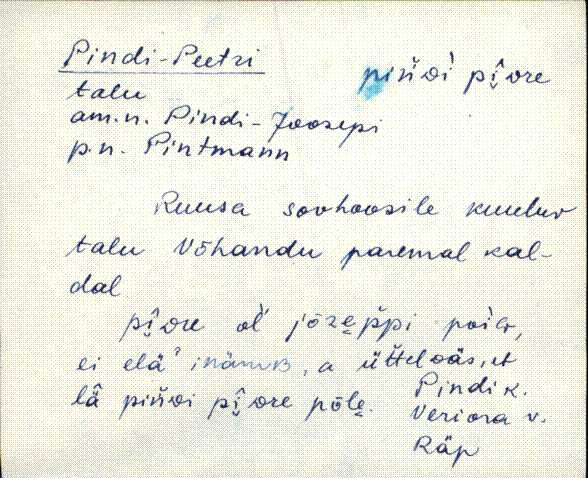 Pindi-Peetri
pińdi pî̬tre
talu
am.n. Pindi-Joosepi
p.n. Pintmann
Ruusa sovhoosile kuuluv
talu Võhandu paremal kal-
dal
pî̬tre ol' jõze̬ppi poig,
ei elä' inämb, a üt́teldäs, et
lä pińdi pî̬tre põle̬.
Pindi k.
Veriora v.
Räp